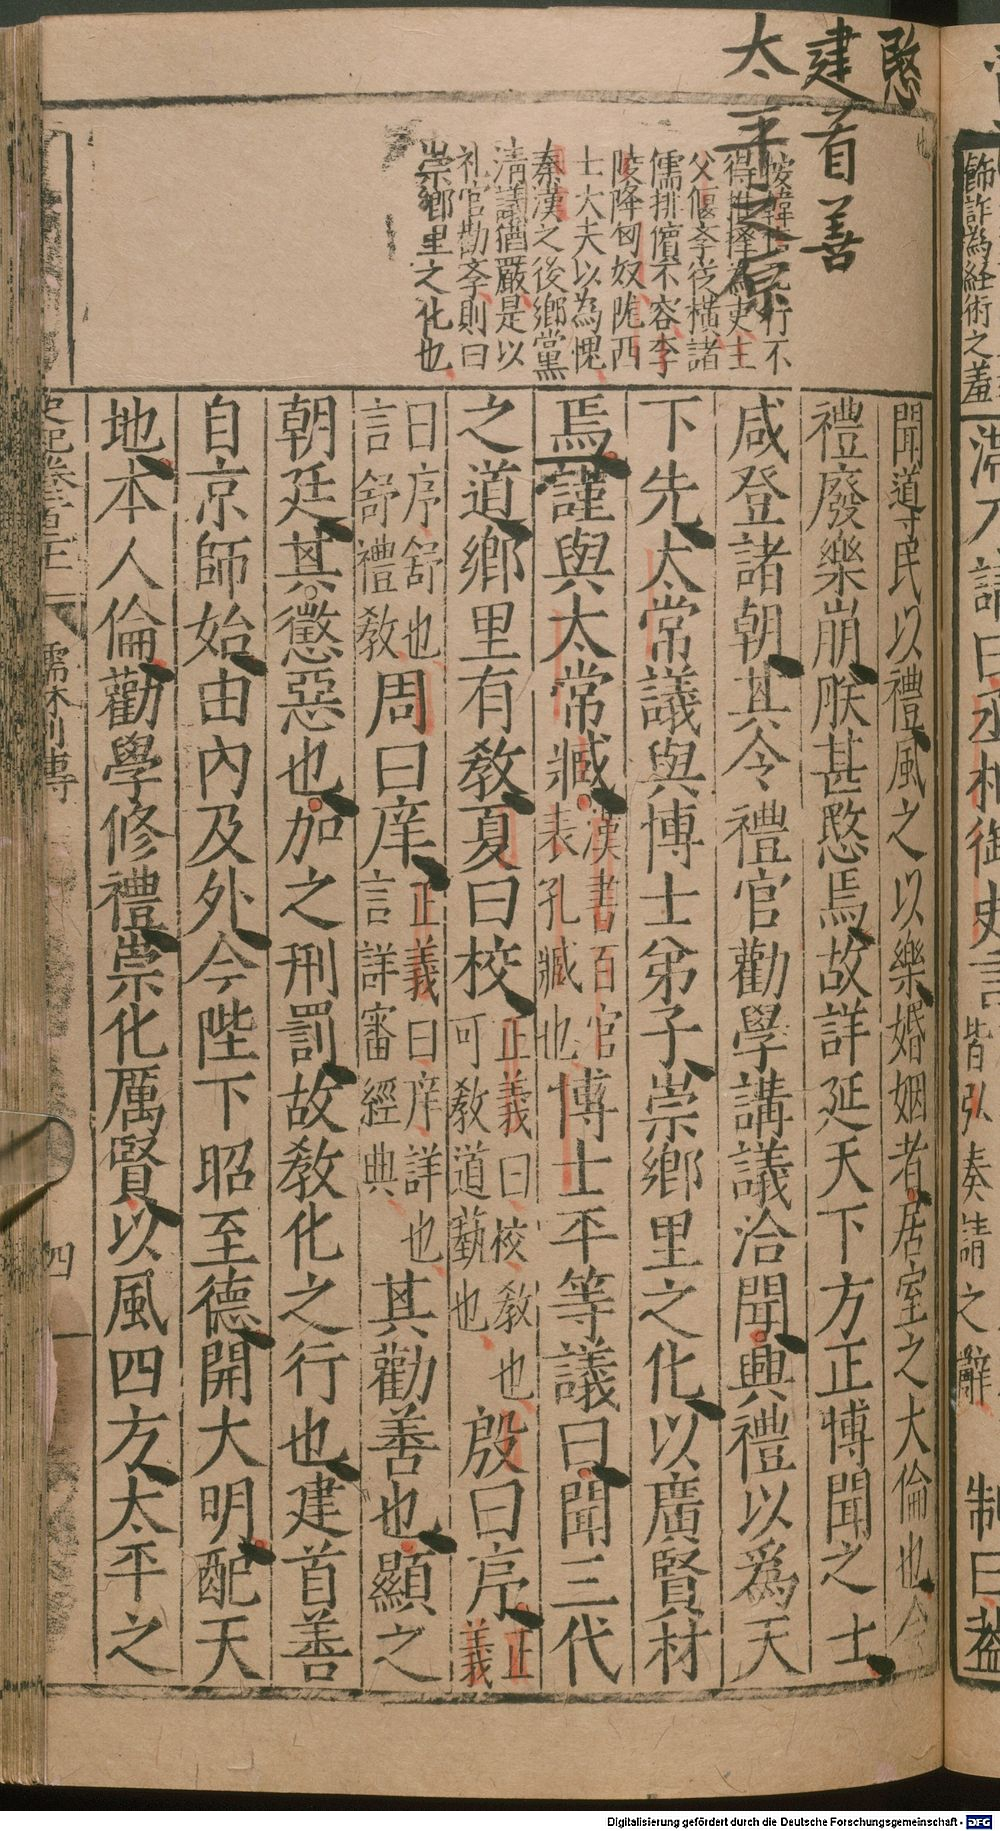 飾詐為經術之羞
制曰蓋
皆弘奏請之辭
愍
建首善
太平之原
得推擇為吏主
父偃齊從橫諸
儒排儐不容李
陵降匈奴隴西
士大夫以為愧
秦漢之後鄉黨
清議猶嚴是以
礼官勸斈則曰
崇鄉里之化也
聞導民以禮風之以樂婚姻者居室之大倫也今
禮廢樂崩朕甚愍焉故詳延天下方正博聞之士
咸登諸朝其令禮官勸學講議洽聞興禮以為天
下先太常議與博士弟子崇鄉里之化以廣賢材
焉謹與太常臧漢書百官表孔臧也博士平等議曰聞三代
之道鄉里有教夏曰校正義曰校教也可教道藝也殷曰序正義
曰序舒也言舒禮教周曰庠正義曰庠詳也言詳審經典其勸善也顯之
朝廷其懲惡也加之刑罰故教化之行也建首善
自京師始由內及外今陛下昭至德開大明配天
地本人倫勸學修禮崇化厲賢以風四方太平之
儒林列傳
四
Digitalisierung gefördert durch die Deutsche Forschungsgemeinschaft - DFG